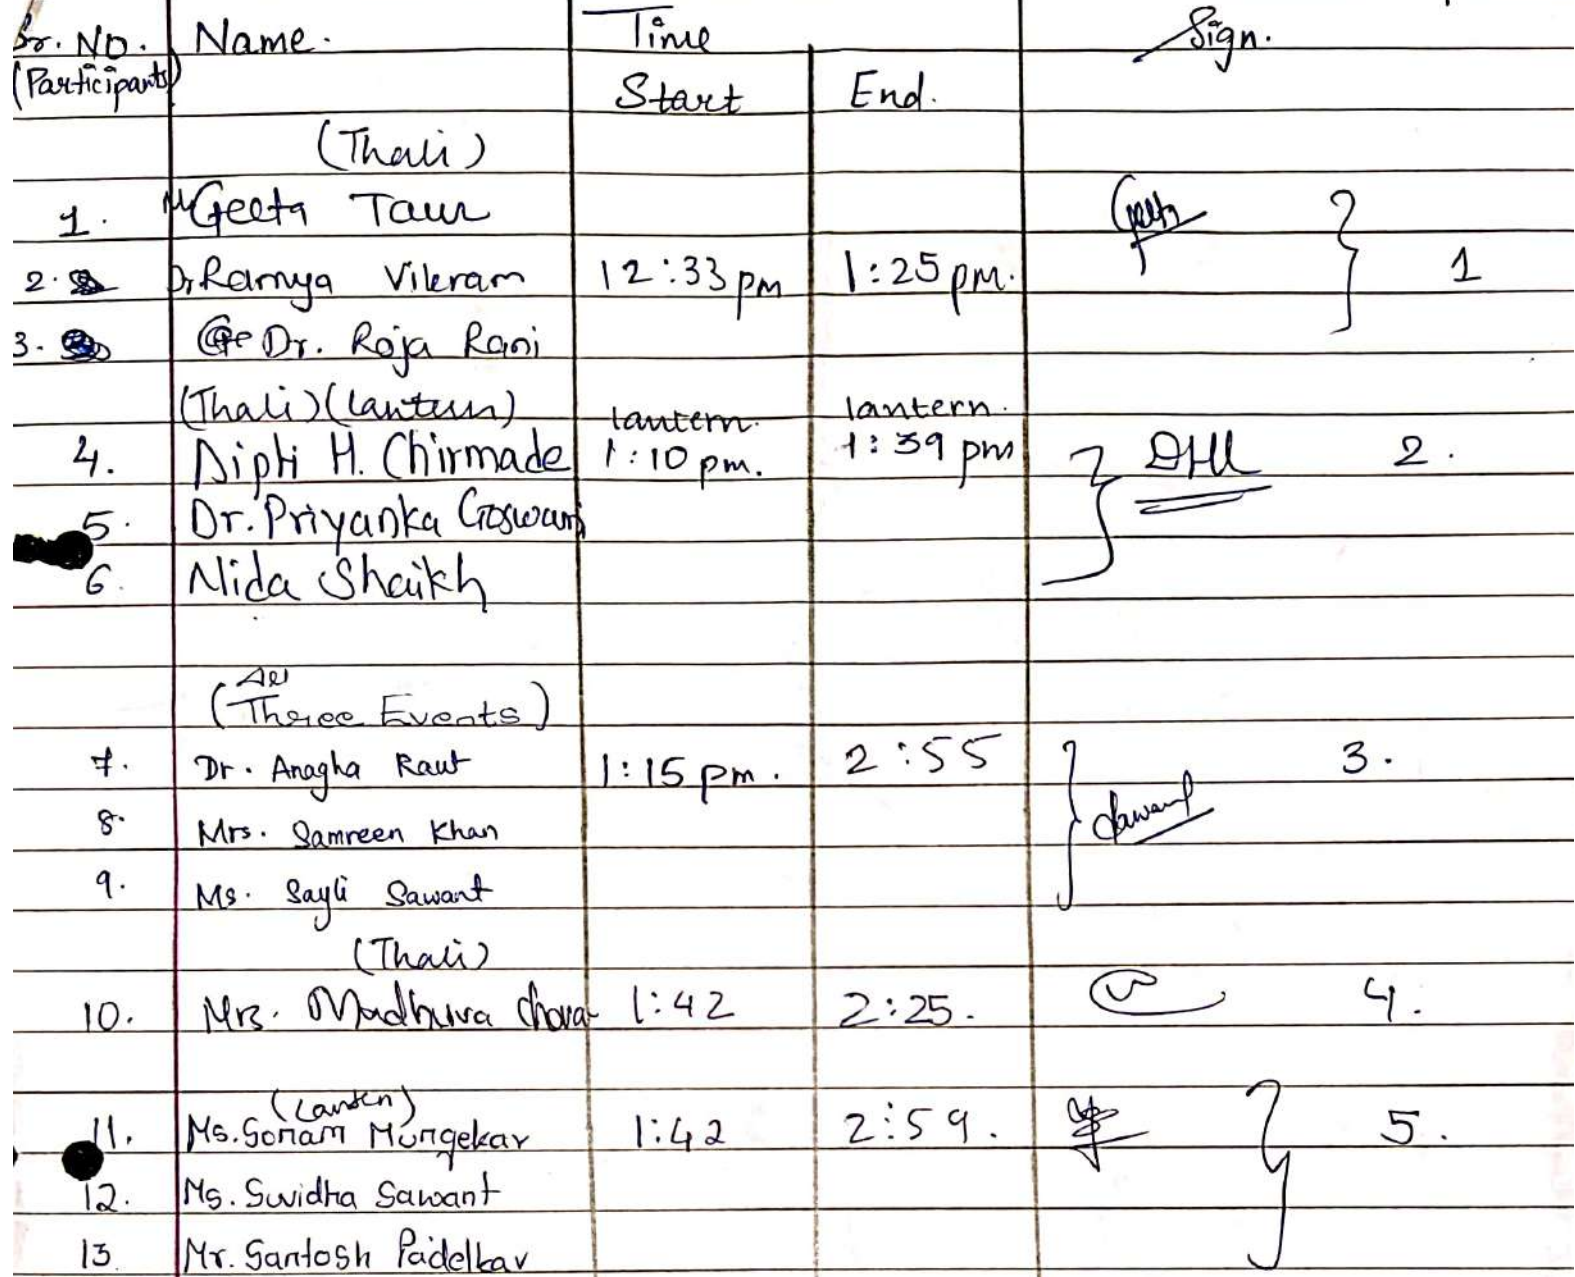 Sr. No. Name. Time Sign.
(Participants) Start End.
(Thali)
1. Geeta Taur Geeta
2. Dr Ramya Vikram 12:33 pm 1:25 pm. 1
3. Dr. Roja Rani
(Thali) (Lantern) lantern. lantern.
4. Dipti H. Chirmade 1:10 pm. 1:39 pm 2.
5. Dr. Priyanka Goswami
6. Nida Shaikh
All
(Three Events)
7. Dr. Anagha Raut 1:15 pm. 2:55 3.
8. Mrs. Samreen Khan Sawant
9. Ms. Sayli Sawant
(Thali)
10. Mrs. Madhura 1:42 2:25. 4.
(Lanten)
11. Ms. Sonam Mungekar 1:42 2:59. 5.
12. Ms. Suvidha Sawant
13. Mr. Santosh Padelkar